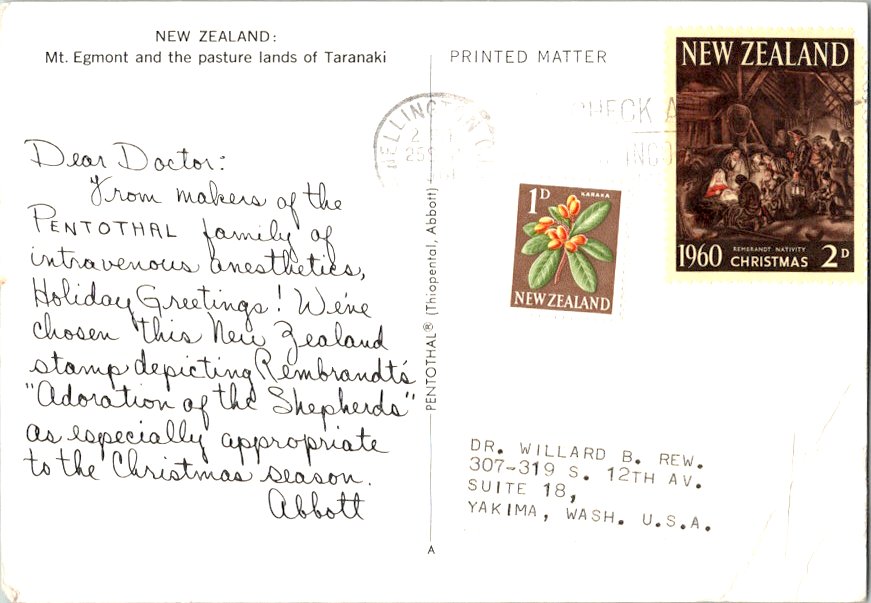 NEW ZEALAND:
Mt. Egmont and the pasture lands of Taranaki
Dear Doctor:
From makers of the
PENTOTHAL family of
intravenous anesthetics,
Holiday Greetings! We've
chosen this New Zealand
stamp depicting Rembrandt's
"Adoration of the Shepherds"
as especially appropriate
to the Christmas season.
Abbott
PENTOTHAL® (Thiopental, Abbott)
A
PRINTED MATTER
WELLINGTON
CHECK
NEW ZEALAND
1960 REMBRANDT NATIVITY
CHRISTMAS 2D
1D KARAKA
NEW ZEALAND
DR. WILLARD B. REW.
307-319 S. 12TH AV.
SUITE 18,
YAKIMA, WASH. U.S.A.